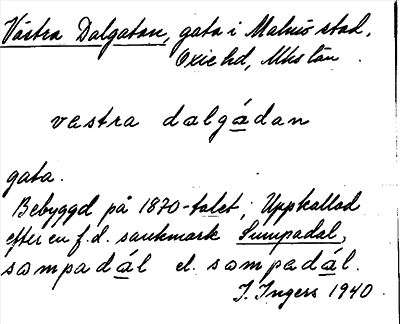 Västra Dalgatan, gata i Malmö stad,
Oxie hd, Mhs län.
vestra dalgádan
gata.
Bebyggd på 1870-talet; Uppkallad
efter en f.d. sankmark Sumpadal,
sømpadál el. sømpedál.
I. Ingers 1940.